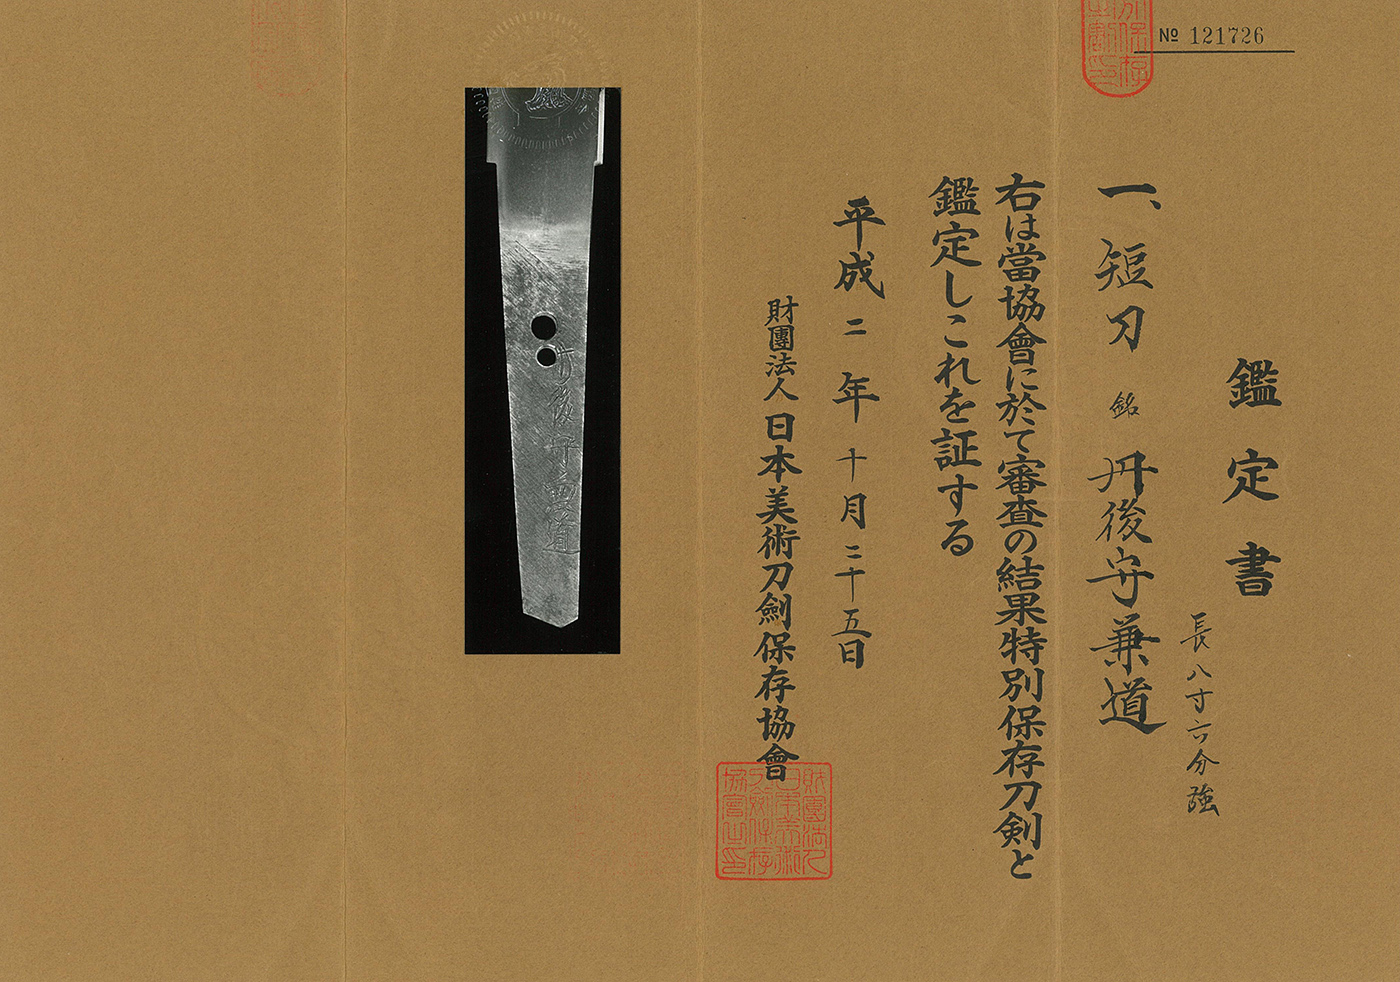 № 121726
鑑定書
長八寸六分強
一、短刀 銘 丹後守兼道
右は當協會に於て審査の結果特別保存刀剣と
鑑定しこれを証する
平成二年十月二十五日
財團法人 日本美術刀劍保存協會
財團法人
日本美術
刀劍保存
協會之印
丹後守兼道